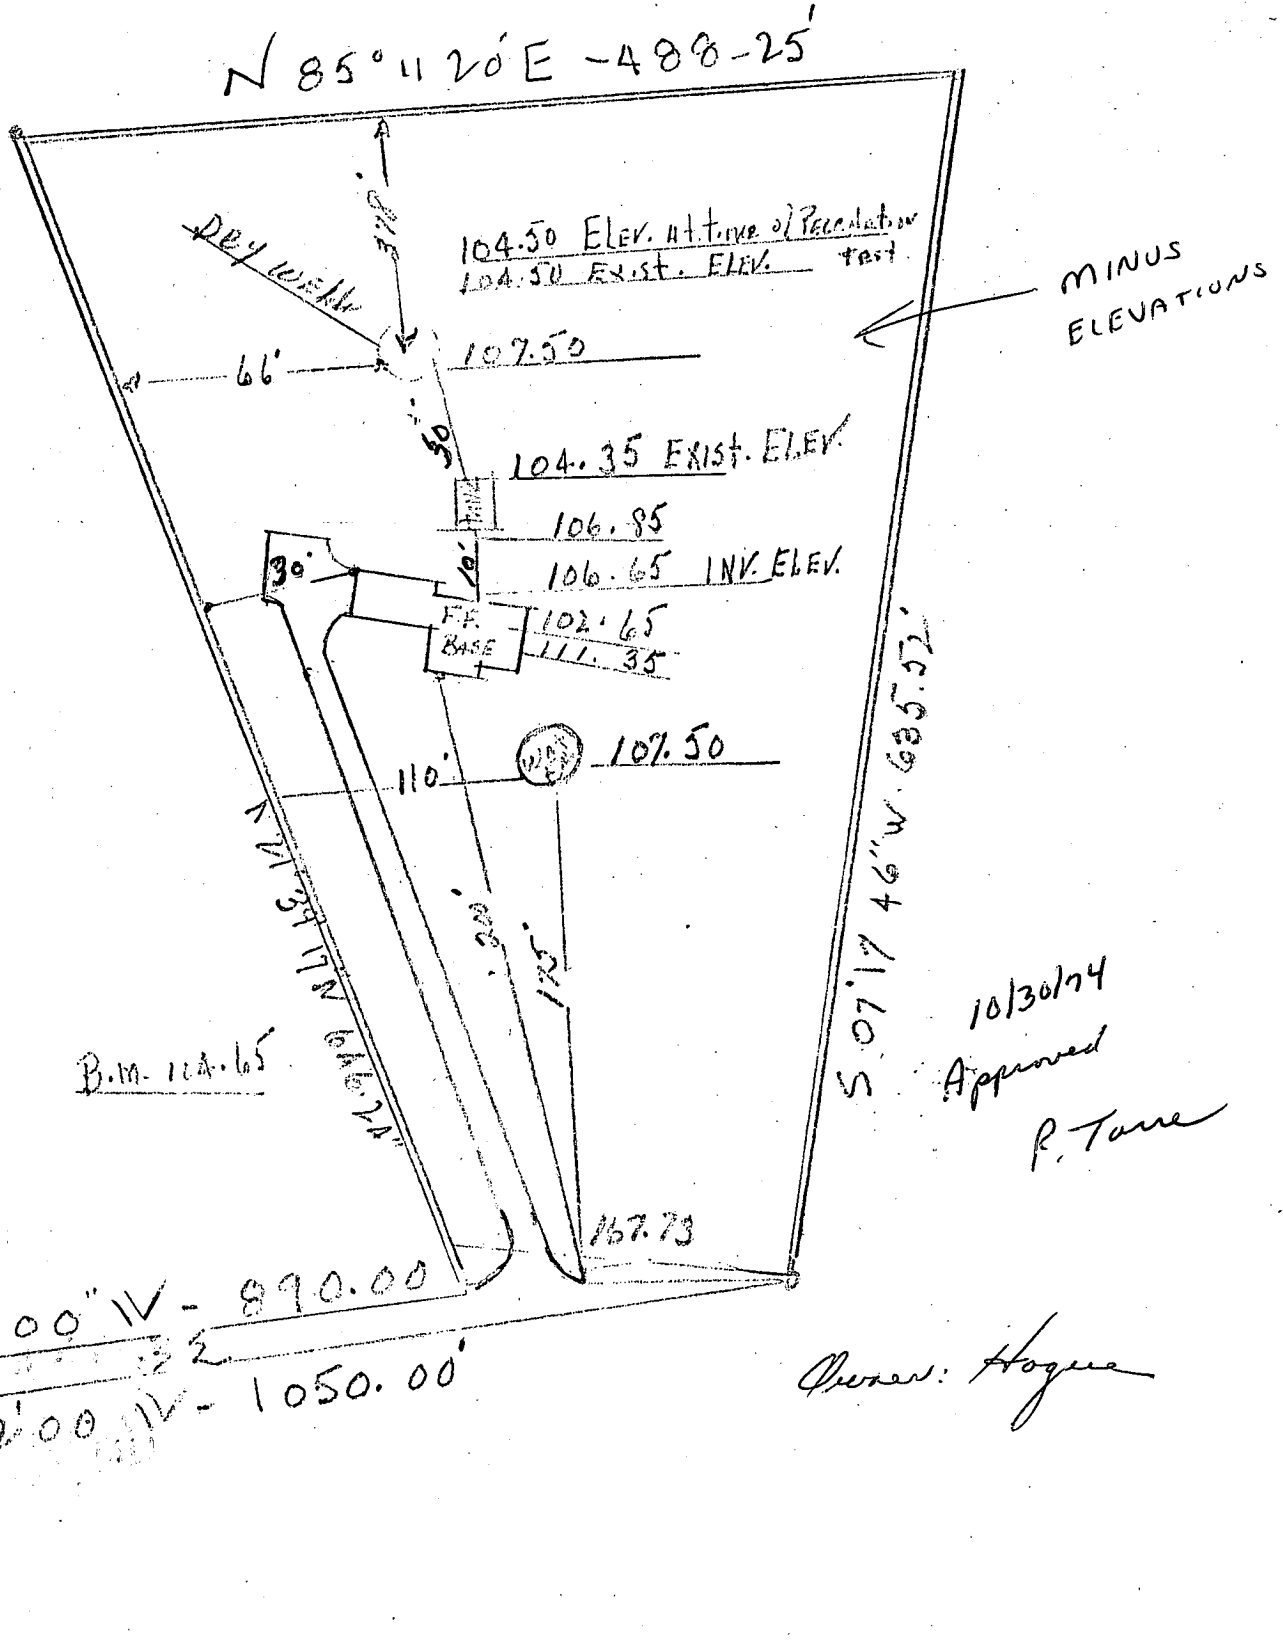 N 85° 11 20' E - 488-25'
378'
Dry Well
104.50 Elev. At time of Percolation
test
104.50 Exist. Elev.
MINUS
ELEVATIONS
107.50
66'
50'
104.35 Exist. Elev.
106.85
10'
106.65 INV. Elev.
30'
F.F.
BASE
102.65
111.35
107.50
110'
200'
175'
S 07° 17 46" W 635.52'
646.24'
B.M. 114.65
10/30/74
Approved
P. Torre
167.73
00" W - 890.00
00 W - 1050.00'
Owner: Hogue